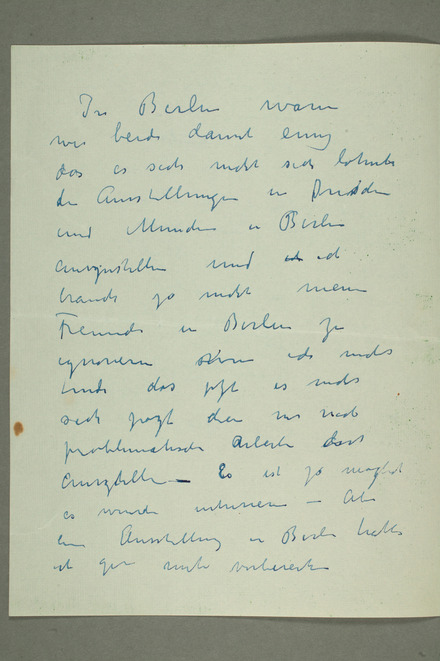 In Berlin waren
wir beide damit einig
das es sich nicht sich lohnte
die Ausstellungen in Dresden
und München in Berlin
auszustellen und ich
brauche ja nicht meine
Freunde in Berlin zu
ignorieren wenn ich nicht
finde das jetzt es nicht
sich jetzt die nur noch
problematische Arbeite dort
auszustellen – Es ist ja möglich
es würde interessieren – Aber
eine Ausstellung in Berlin hatte
ich gern mit vorbereiten